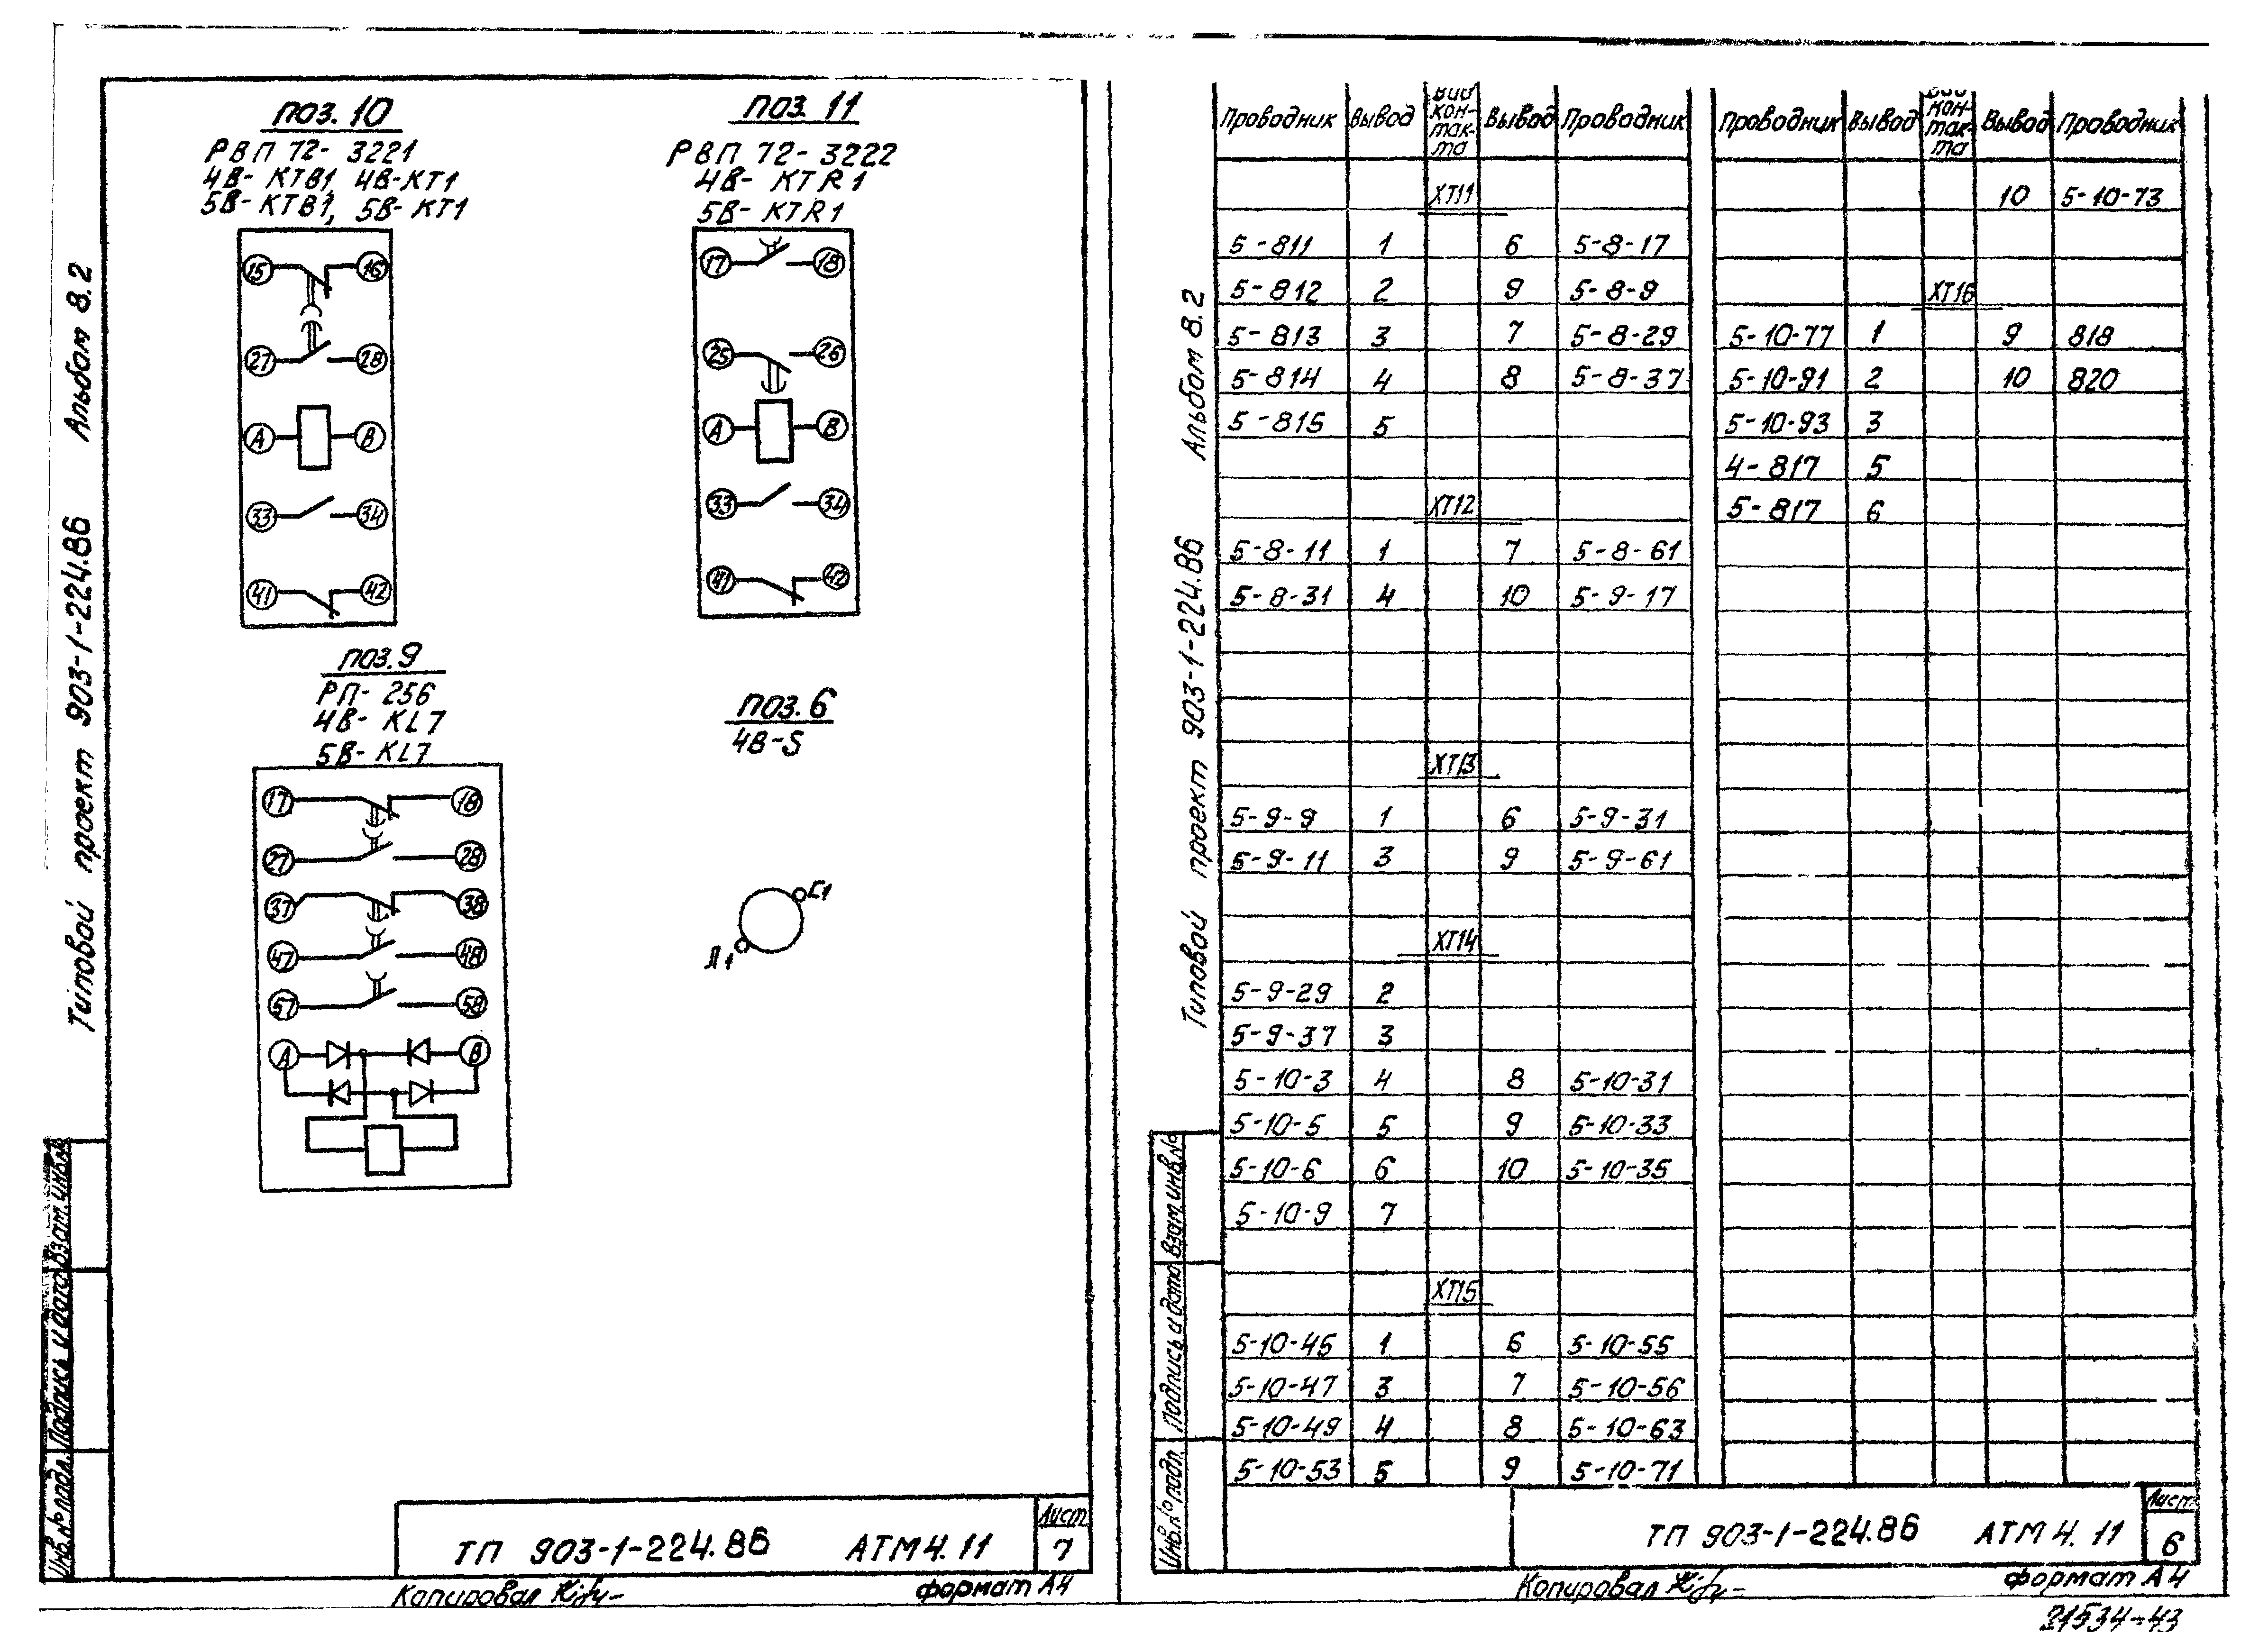 Типовой проект 903-1-224.86 Альбом 8.2
поз. 10
РВП 72- 3221
4В- КТВ1, 4В-КТ1
5В- КТВ1, 5В- КТ1
15 16
27 28
А В
33 34
41 42
поз. 11
РВП 72- 3222
4В- КТR1
5В- КТR1
17 18
25 26
А В
33 34
41 42
поз. 9
РП- 256
4В- KL7
5В- KL7
17 18
27 28
37 38
47 48
57 58
А В
поз. 6
4В-S
С1
Л1
Инв.№подл. Подпись и дата Взам.инв.№
ТП 903-1-224.86 АТМ4.11
Лист
7
Копировал
формат А4
Типовой проект 903-1-224.86 Альбом 8.2
Проводник Вывод Вид кон-так-та Вывод Проводник
ХТ11
5-811 1 6 5-8-17
5-812 2 9 5-8-9
5-813 3 7 5-8-29
5-814 4 8 5-8-37
5-815 5
ХТ12
5-8-11 1 7 5-8-61
5-8-31 4 10 5-9-17
ХТ13
5-9-9 1 6 5-9-31
5-9-11 3 9 5-9-61
ХТ14
5-9-29 2
5-9-37 3
5-10-3 4 8 5-10-31
5-10-5 5 9 5-10-33
5-10-6 6 10 5-10-35
5-10-9 7
ХТ15
5-10-45 1 6 5-10-55
5-10-47 3 7 5-10-56
5-10-49 4 8 5-10-63
5-10-53 5 9 5-10-71
Проводник Вывод Вид кон-так-та Вывод Проводник
10 5-10-73
ХТ16
5-10-77 1 9 818
5-10-91 2 10 820
5-10-93 3
4-817 5
5-817 6
Инв.№подл. Подпись и дата Взам.инв.№
ТП 903-1-224.86 АТМ4.11
Лист
6
Копировал
формат А4
21534-43